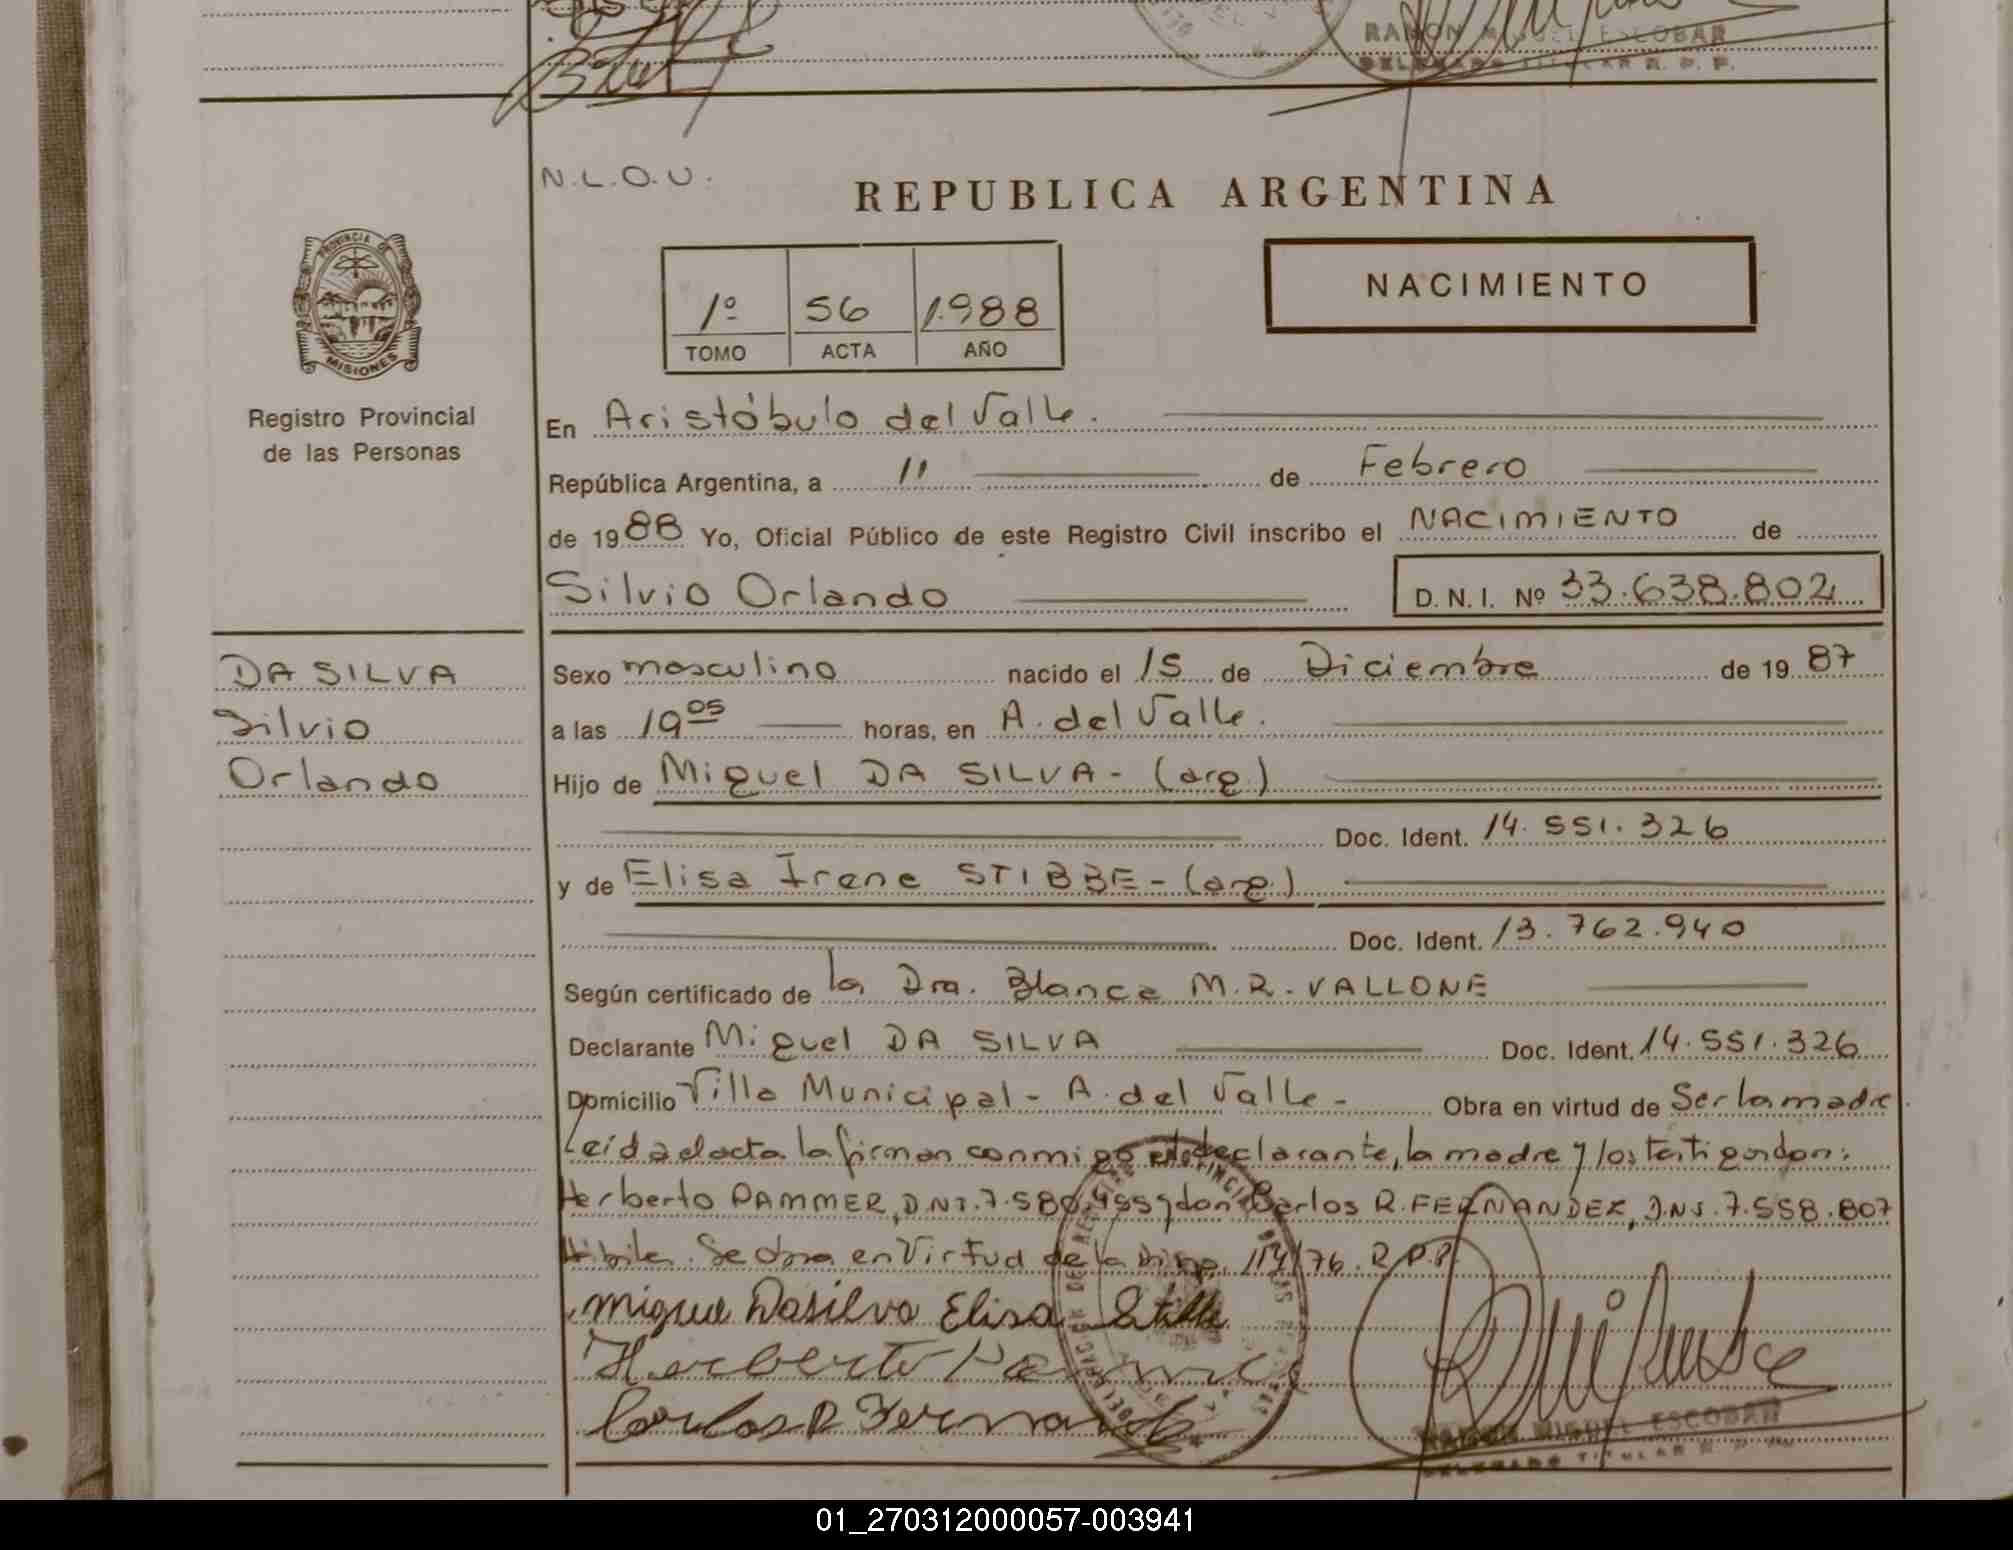 RAMON MIGUEL ESCOBAR
DELEGADO TITULAR R. P. P.
N.L.O.U.
REPUBLICA ARGENTINA
PROVINCIA DE
MISIONES
Registro Provincial
de las Personas
1º 56 1.988
TOMO ACTA AÑO
NACIMIENTO
En Aristóbulo del Valle.
República Argentina, a 11 de Febrero
de 1988 Yo, Oficial Público de este Registro Civil inscribo el NACIMIENTO de
Silvio Orlando D. N. I. Nº 33.638.802
DA SILVA
Silvio
Orlando
Sexo masculino nacido el 15 de Diciembre de 1987
a las 19 05 horas, en A. del Valle.
Hijo de Miguel DA SILVA - (arg.)
Doc. Ident. 14.551.326
y de Elisa Irene STIBBE - (arg.)
Doc. Ident. 13.762.940
Según certificado de la Dra. Blanca M.R. VALLONE
Declarante Miguel DA SILVA Doc. Ident. 14.551.326
Domicilio Villa Municipal - A. del Valle - Obra en virtud de Ser la madre
Leída el acta la firman conmigo el declarante, la madre y los testigos don:
Herberto DAMMER, D.N.I. 7.580.455 y don Carlos R. FERNANDEZ, D.N.I. 7.558.807
Hábiles. Se obra en Virtud de la Disp. 114/76. R.P.P.
Miguel Dasilva Elisa Stibbe
Herberto
Carlos R Fernandez
RAMON MIGUEL ESCOBAR
DELEGADO TITULAR R. P. P.
01_270312000057-003941